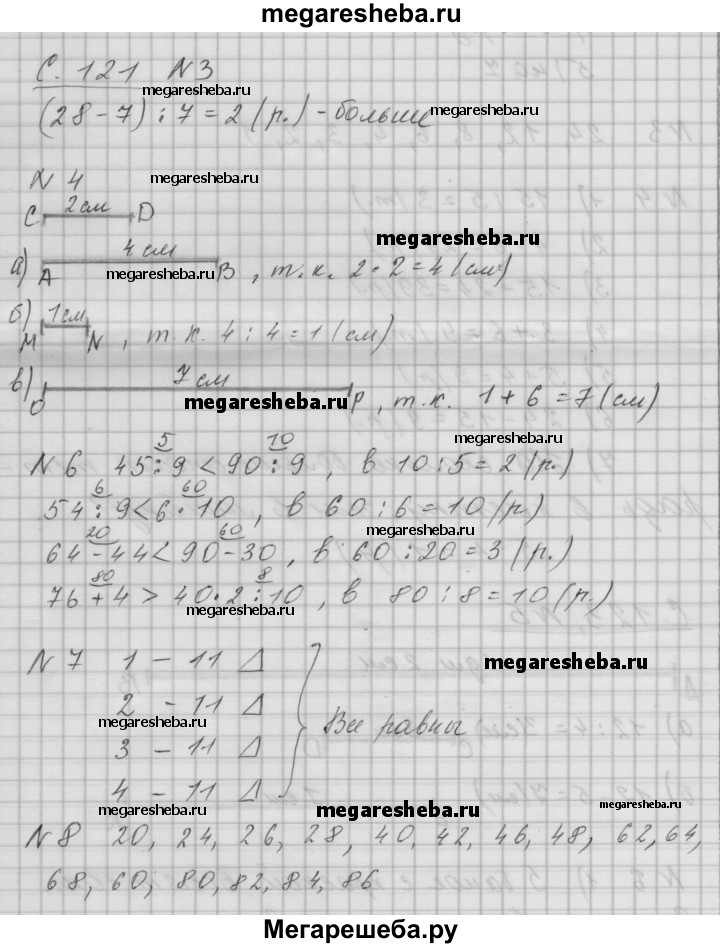 megaresheba.ru
С. 121 N 3
megaresheba.ru
(28 - 7) : 7 = 2 (р.) - больше
megaresheba.ru
N 4
megaresheba.ru
2 см
C D
megaresheba.ru
4 см
а) A B, т.к. 2 · 2 = 4 (см)
megaresheba.ru
б) 1 см
M N, т.к. 4 : 4 = 1 (см)
в) 7 см
O P, т.к. 1 + 6 = 7 (см)
megaresheba.ru
megaresheba.ru
5 10
N 6 45 : 9 < 90 : 9, в 10 : 5 = 2 (р.)
6 60
54 : 9 < 6 · 10, в 60 : 6 = 10 (р)
megaresheba.ru
20 60
64 - 44 < 90 - 30, в 60 : 20 = 3 (р.)
80 8
76 + 4 > 40 · 2 : 10, в 80 : 8 = 10 (р.)
megaresheba.ru
N 7 1 - 11 Δ
megaresheba.ru
2 - 11 Δ
megaresheba.ru
Все равны
3 - 11 Δ
4 - 11 Δ
megaresheba.ru
megaresheba.ru
megaresheba.ru
N 8 20, 24, 26, 28, 40, 42, 46, 48, 62, 64,
68, 60, 80, 82, 84, 86
megaresheba.ru
Мегарешеба.ру